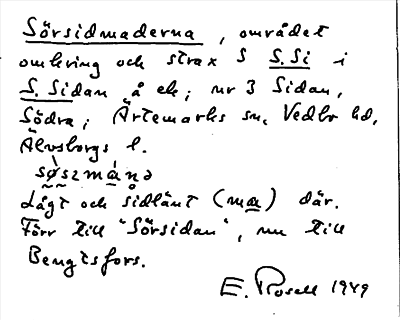 Sörsidmaderna, området
omkring och strax S S.Si i
S.Sidan å ek; nr 3 Sidan,
Södra; Ärtemarks sn, Vedbo hd,
Älvsborgs l.
Lågt och sidlänt (ma) där.
Förr till "Sörsidan", nu till
Bengtsfors.
E. Rosell 1949